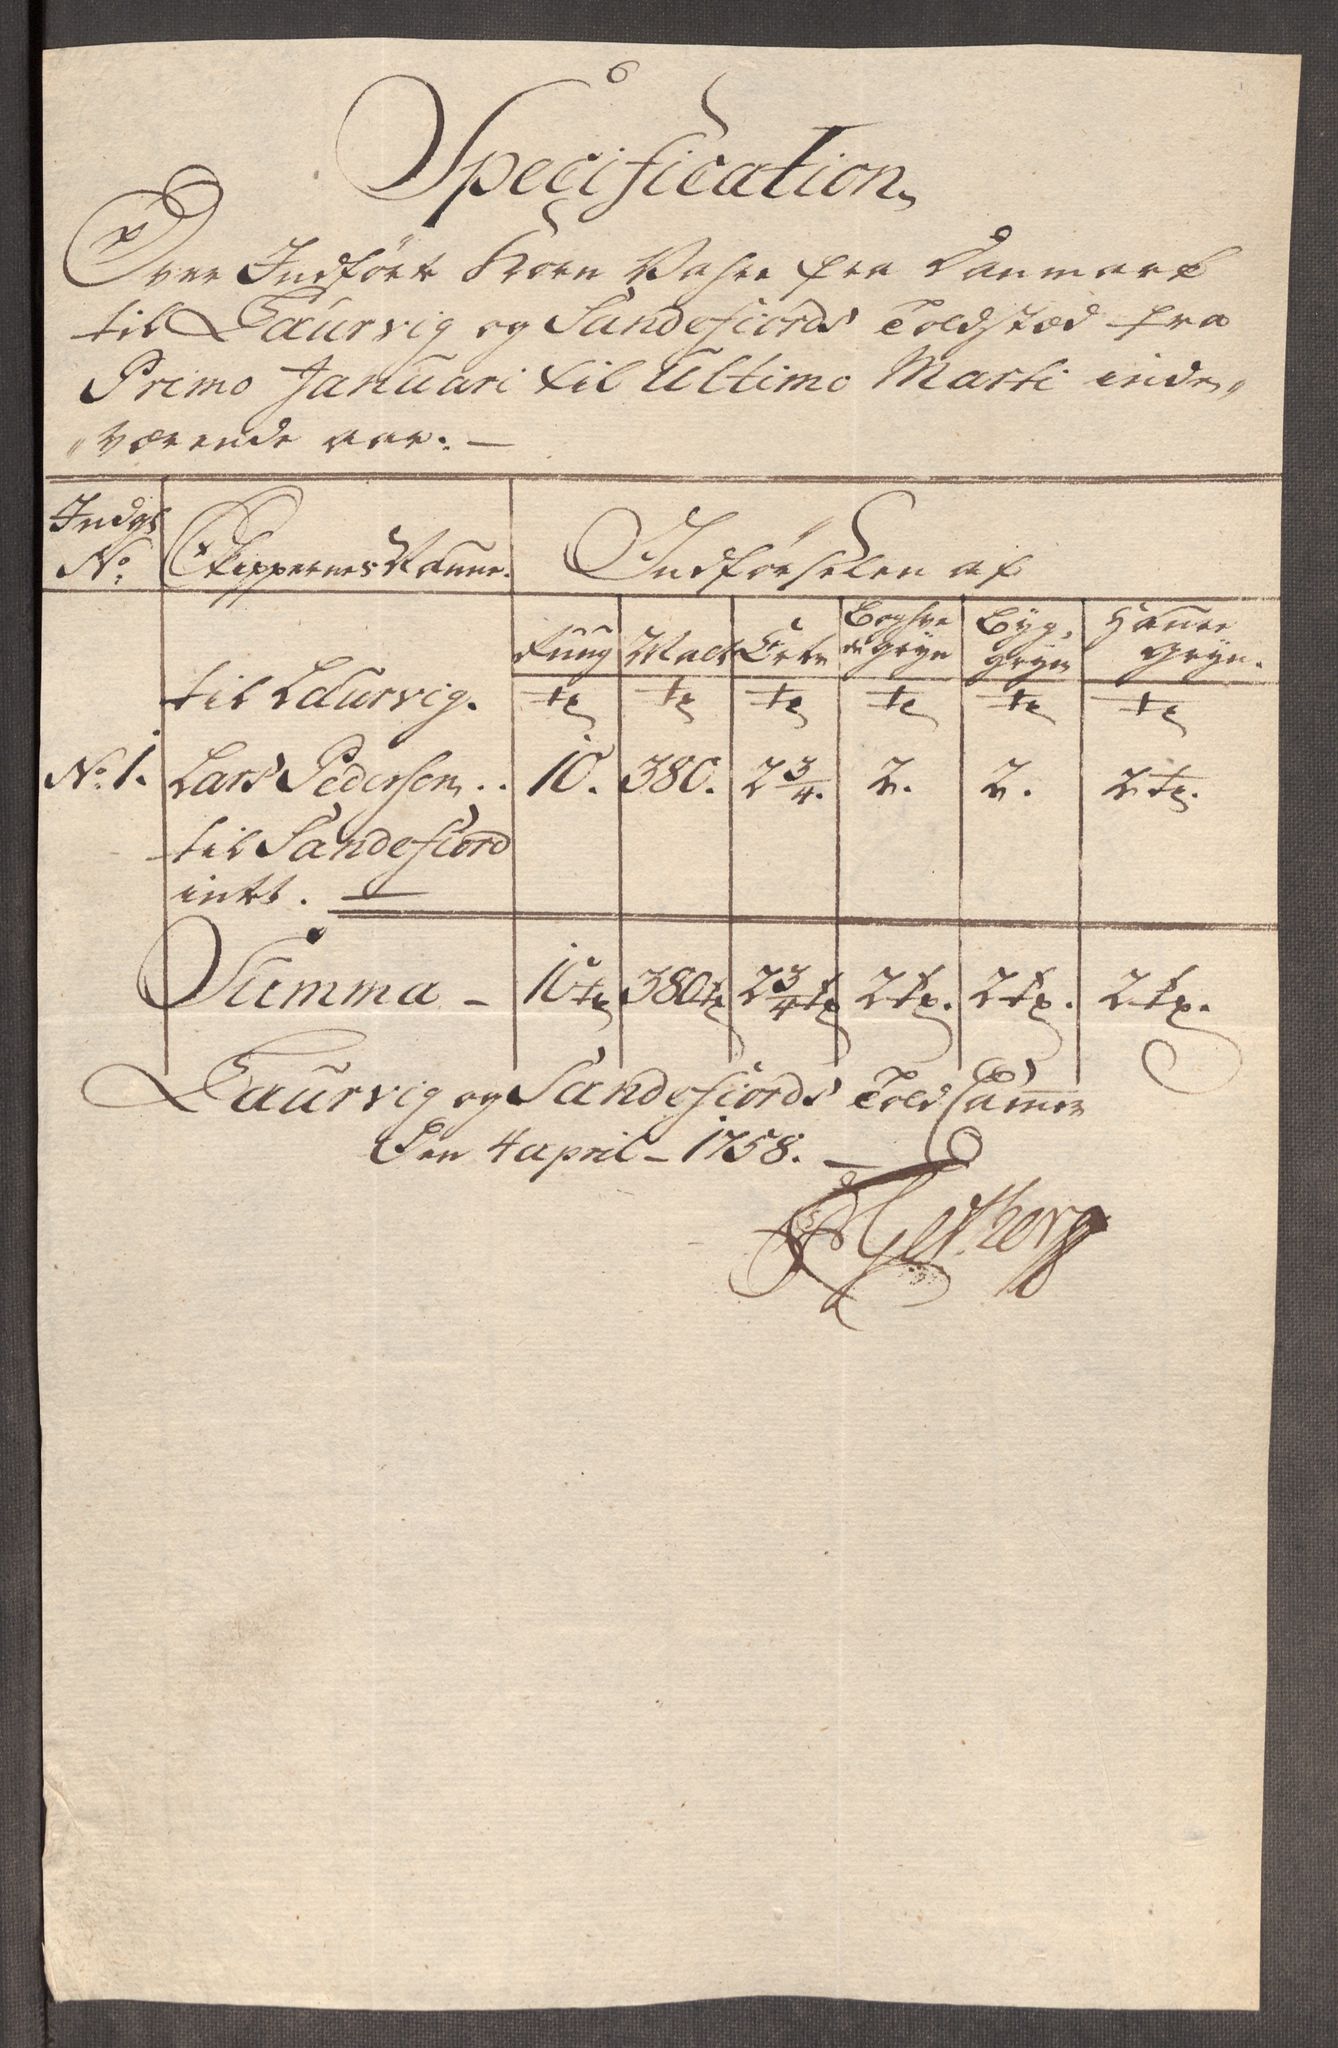 Specification
Over Indfört Korn Vahre fra Danmark
til Laurvig og Sandefiords Toldstæd fra
Primo Januari til Ultimo Marti inde„
„værende aar. —
Indgl No. Skippernes Nafne. Indförselen af
Ruug Malt Erter Boghvede gryn Byg gryn Hafre gryn.
til Laurvig. te te te te te te
No. 1. Lars Pedersen .. 10. 380. 2 3/4. 2. 2. 2 te.
til Sandefiord
intet. —
Summa — 10 te 380 te 2 3/4 te 2 te. 2 te. 2 te.
Laurvig og Sandefiords Told Cammer
Den 4 april — 1758. —